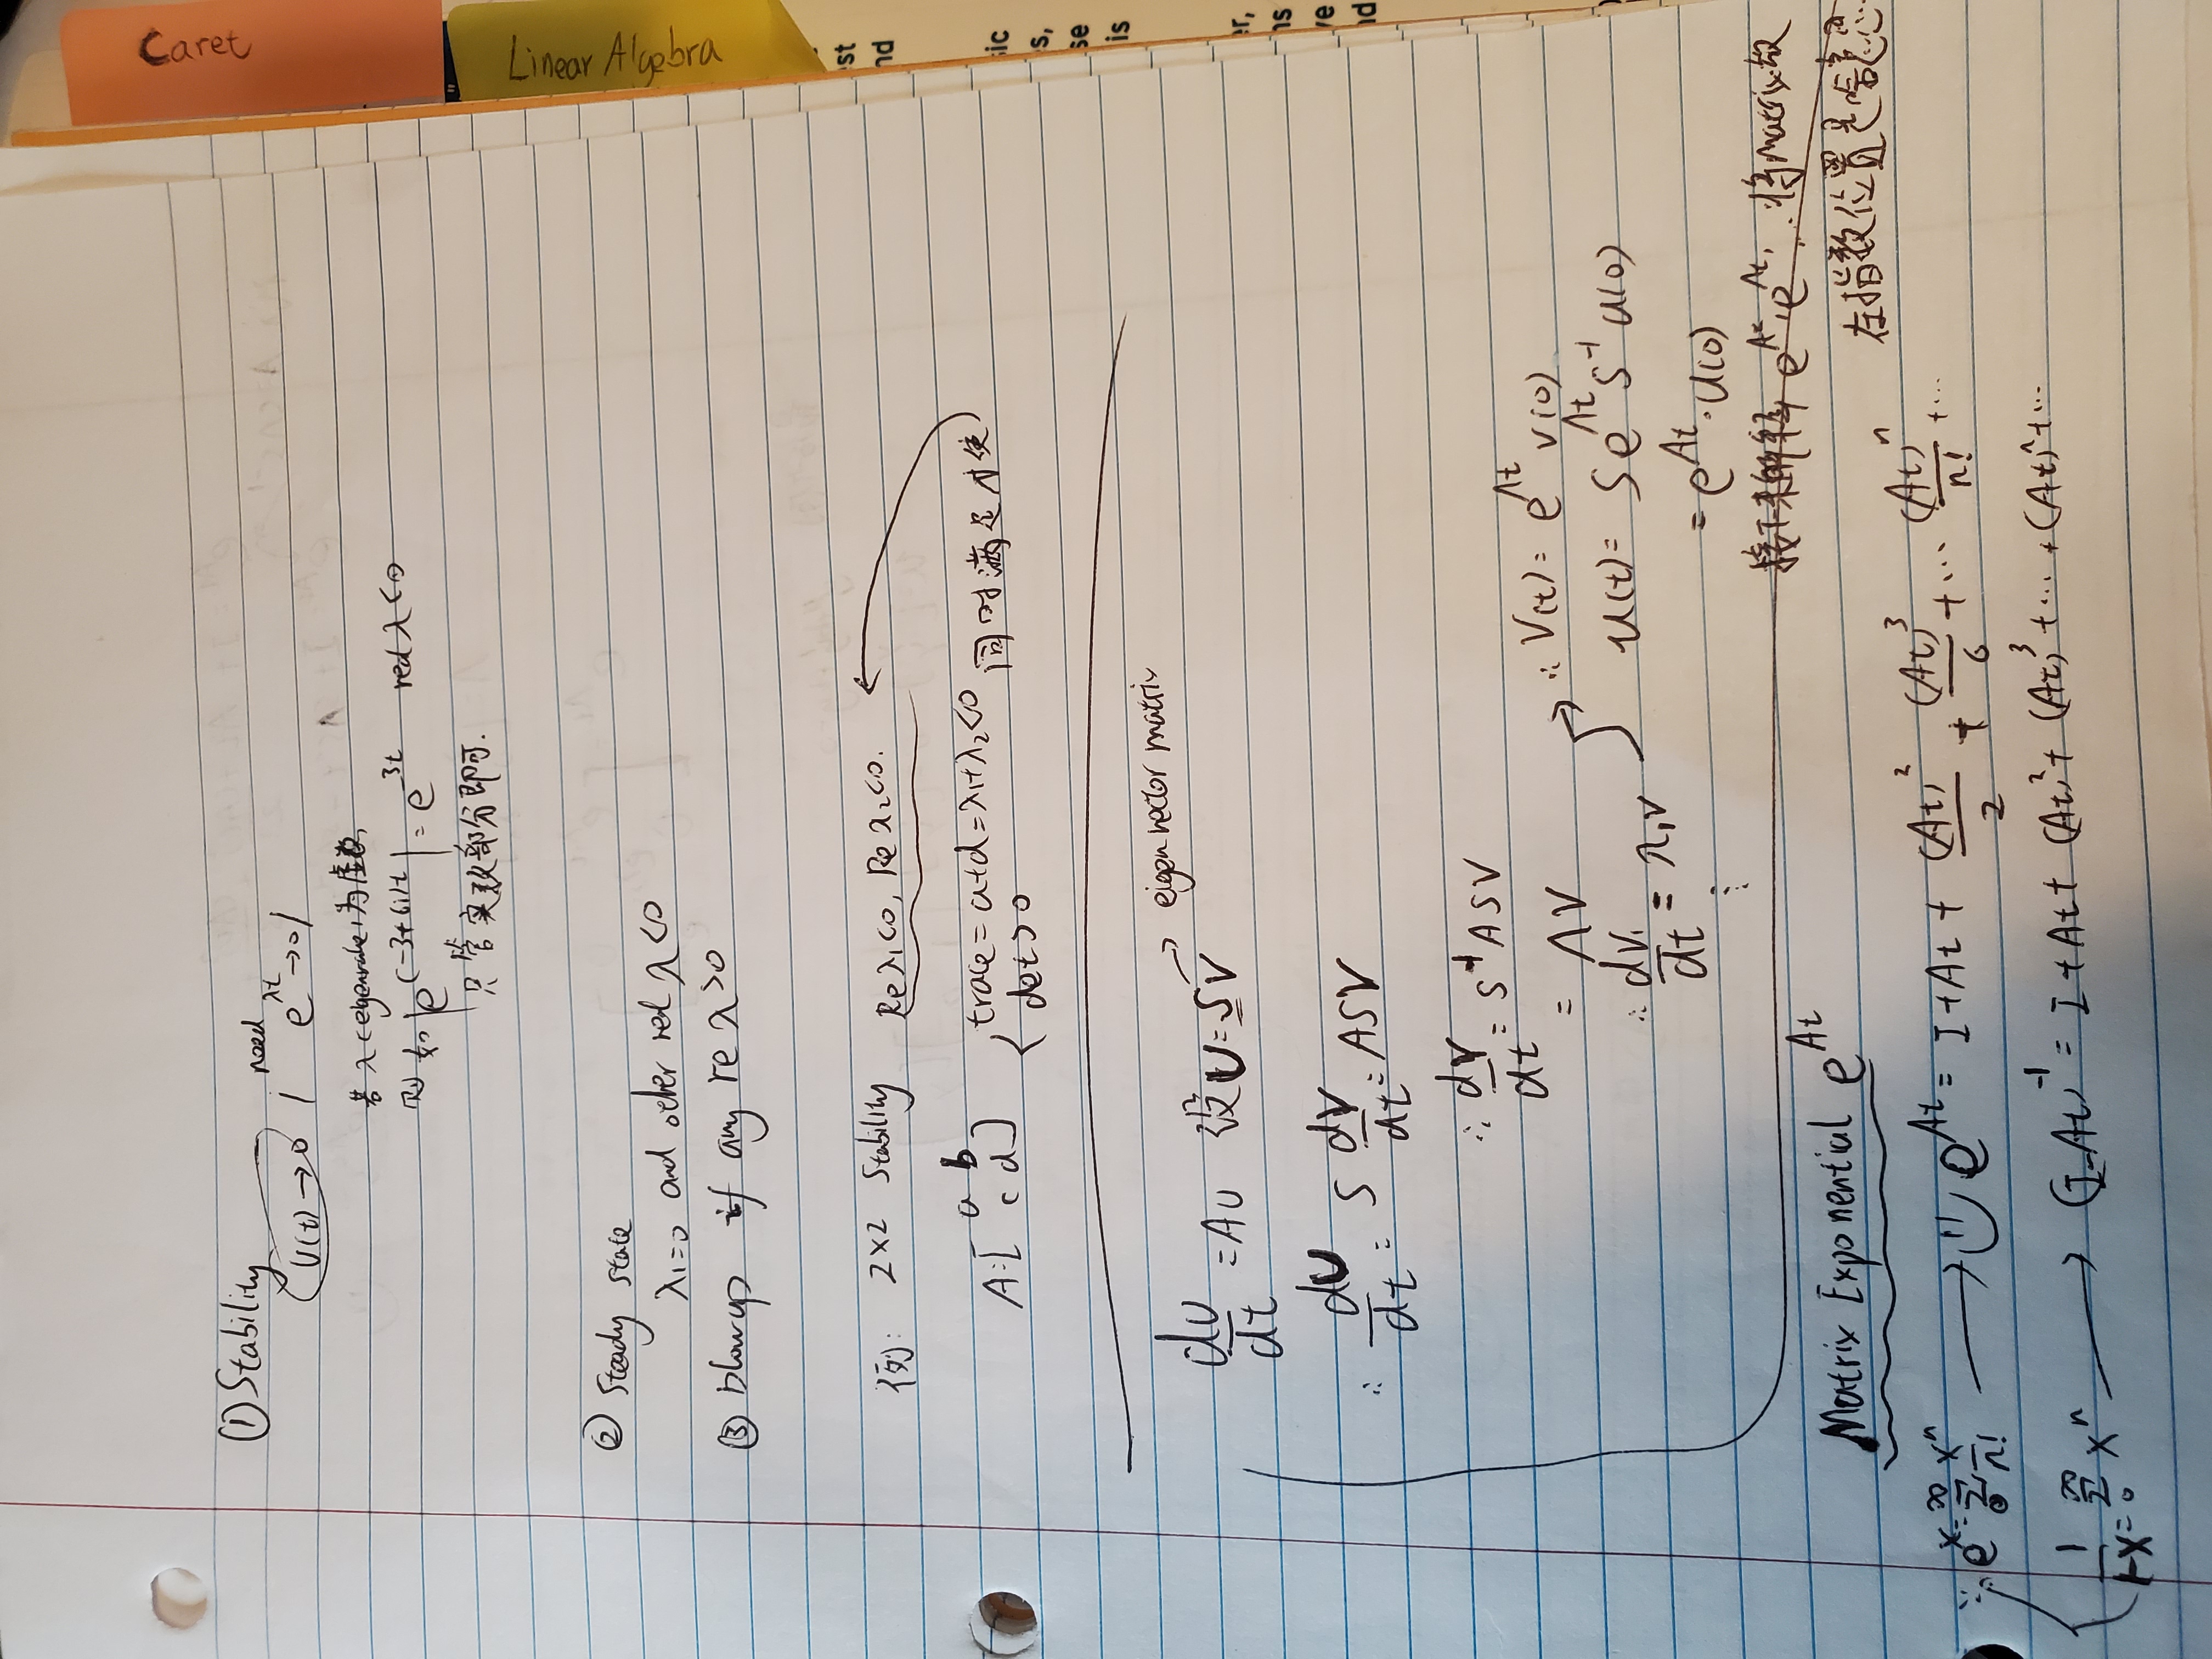 ① Stability
U(t) → 0 | need e^{λt} → 0 |
若 λ (eigenvalue) 为虚数,
则 如 |e^{(-3+6i)t}| = e^{-3t} real λ<0
只管实数部分即可.
② Steady state
λ₁=0 and other real λ<0
③ Blowup if any re λ>0
例: 2×2 Stability Re λ₁<0, Re λ₂<0.
A: [a b
c d]
{ trace = a+d = λ₁+λ₂<0
det>0
同时满足才使
eigenvector matrix
du/dt = AU 设 U = SV
∴ dU/dt = S dV/dt = ASV
∴ dV/dt = S⁻¹ASV
= ΛV
∴ dV₁/dt = λ₁V
⋮
∴ V(t) = e^{Λt} V(0)
u(t) = Se^{Λt}S⁻¹ U(0)
= e^{At}·U(0)
接下来解释 e^{At}, e^{Λt}, ... 将Matrix放
在指数位置是啥意思
Matrix Exponential e^{At}
∵ e^x = ∑_0^∞ x^n/n! → e^{At} = I + At + (At)²/2 + (At)³/6 + ... (At)^n/n! + ...
1/(1-x) = ∑_0^∞ x^n → (I-At)⁻¹ = I + At + (At)² + (At)³ + ... + (At)^n + ...
Caret
Linear Algebra
st
nd
ic
s,
se
is
er,
ns
ve
nd